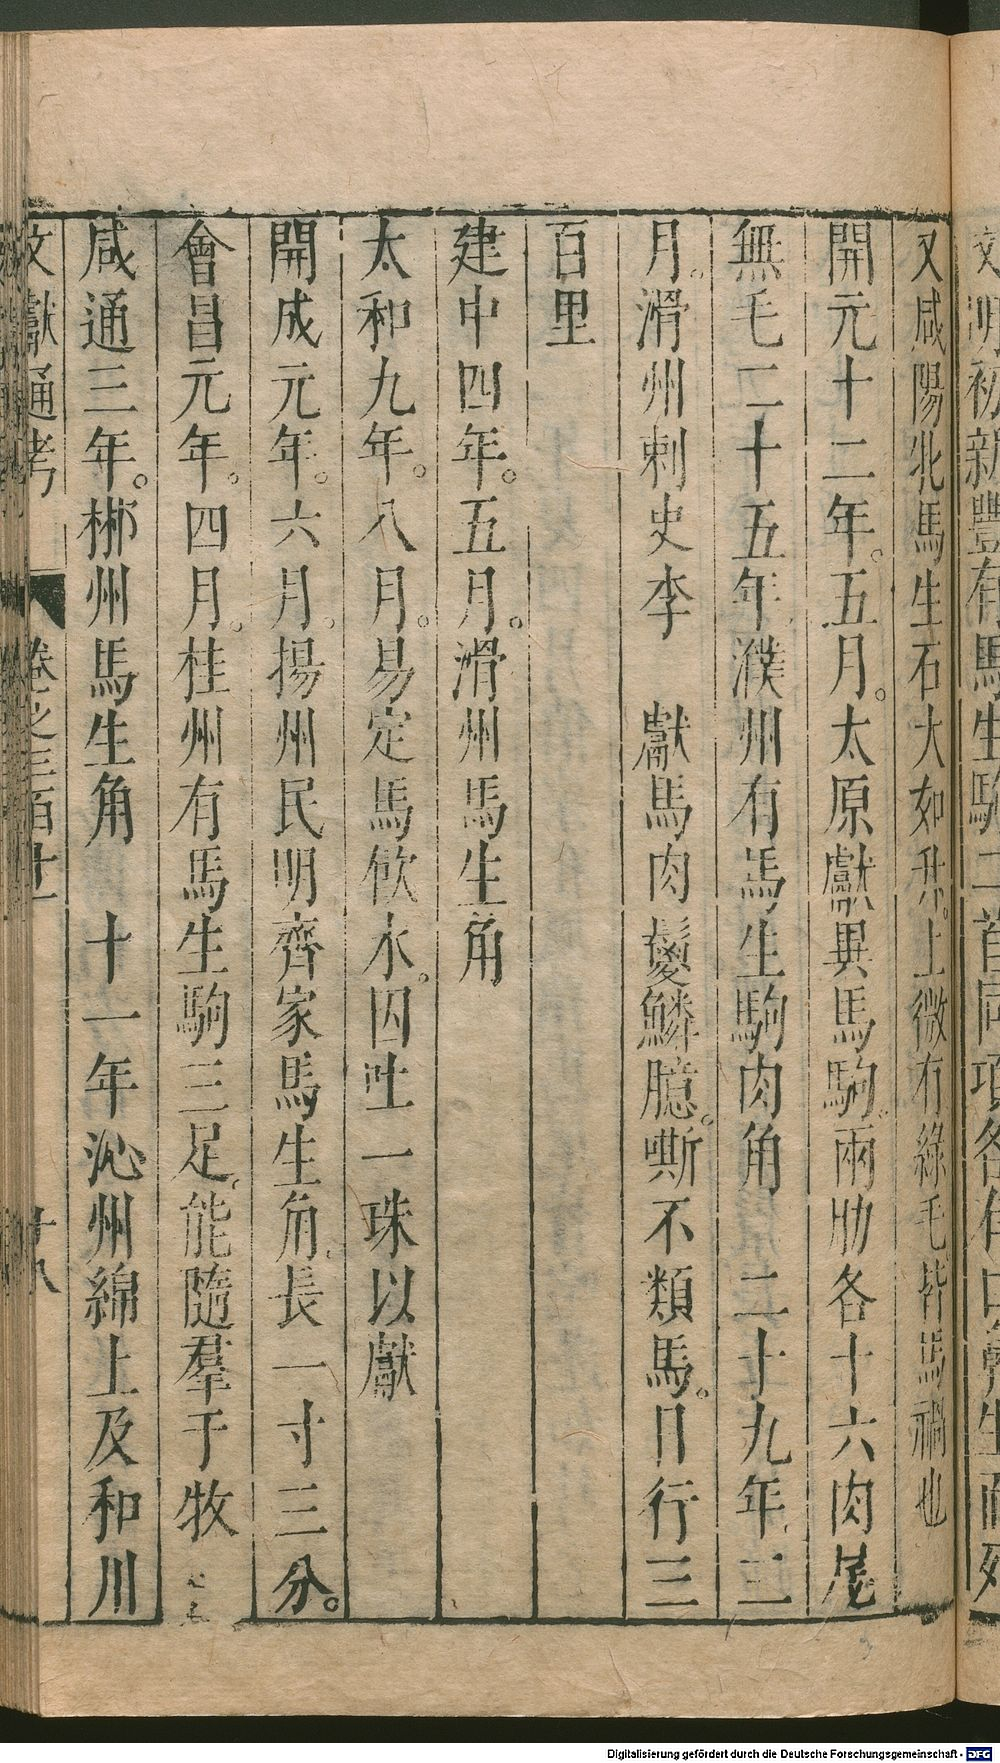 文明初新豐有馬生駒二首同項各有口鼻生而死
又咸陽牝馬生石大如升。上微有綠毛皆馬禍也
開元十二年。五月。太原獻異馬駒。兩肋各十六肉尾
無毛二十五年濮州有馬生駒肉角 二十九年三
月。滑州刺史李 獻馬肉鬉鱗臆。嘶不類馬。日行三
百里
建中四年。五月。滑州馬生角
太和九年。八月。易定馬飲水。因吐一珠以獻
開成元年。六月。揚州民明齊家馬生角。長一寸三分。
會昌元年。四月。桂州有馬生駒三足。能隨羣于牧
咸通三年。郴州馬生角 十一年沁州綿上及和川
文獻通考 卷之三百十一 十八
Digitalisierung gefördert durch die Deutsche Forschungsgemeinschaft - DFG